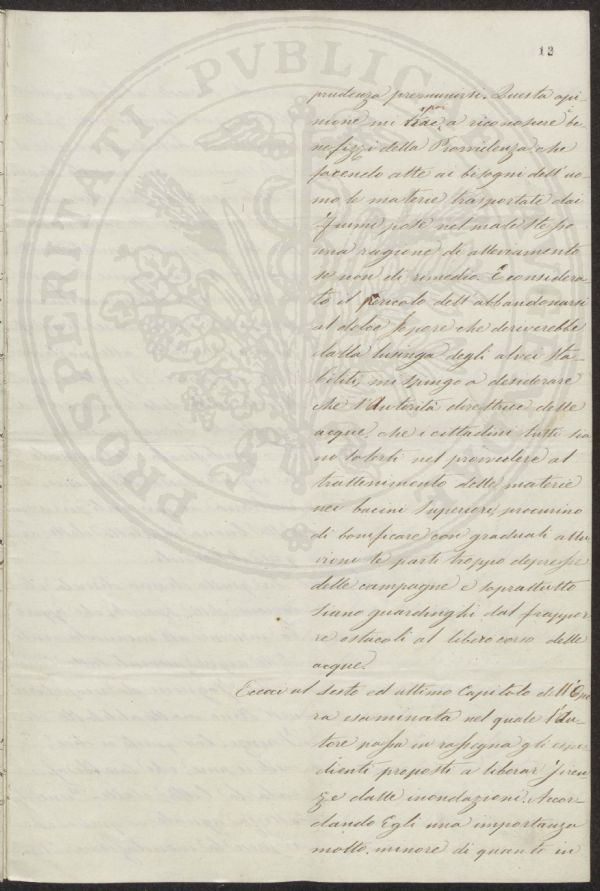 12
prudenza premunirsi. Questa opi-
nione mi spor
trae a riconoscere be
nefizzi della Provvidenza che
facendo atte ai bisogni dell'uo
mo le materie trasportate dai
fiumi pose nel male stesso
una ragione di alleviamento
se non di rimedio. E considera
to il pericolo dell'abbandonarsi
al dolce sopore che deriverebbe
dalla lusinga degli alvei sta
biliti, mi spingo a desiderare
che l'Autorità direttrice delle
acque, che i cittadini tutti sia
no solerti nel provvedere al
trattenimento delle materie
nei bacini superiori, procurino
di bonificare con graduati allu
vioni le parti troppo depresse
delle campagne e soprattutto
siano guardinghi dal frappor
re ostacoli al libero corso delle
acque.
Eccoci al sesto ed ultimo Capitolo dell'Ope
ra esaminata nel quale l'Au-
tore passa in rassegna gli espe
dienti proposti a liberar Firen
ze dalle inondazioni. Accor-
dando Egli una importanza
molto minore di quanti in
PROSPERITATI PVBLICAE